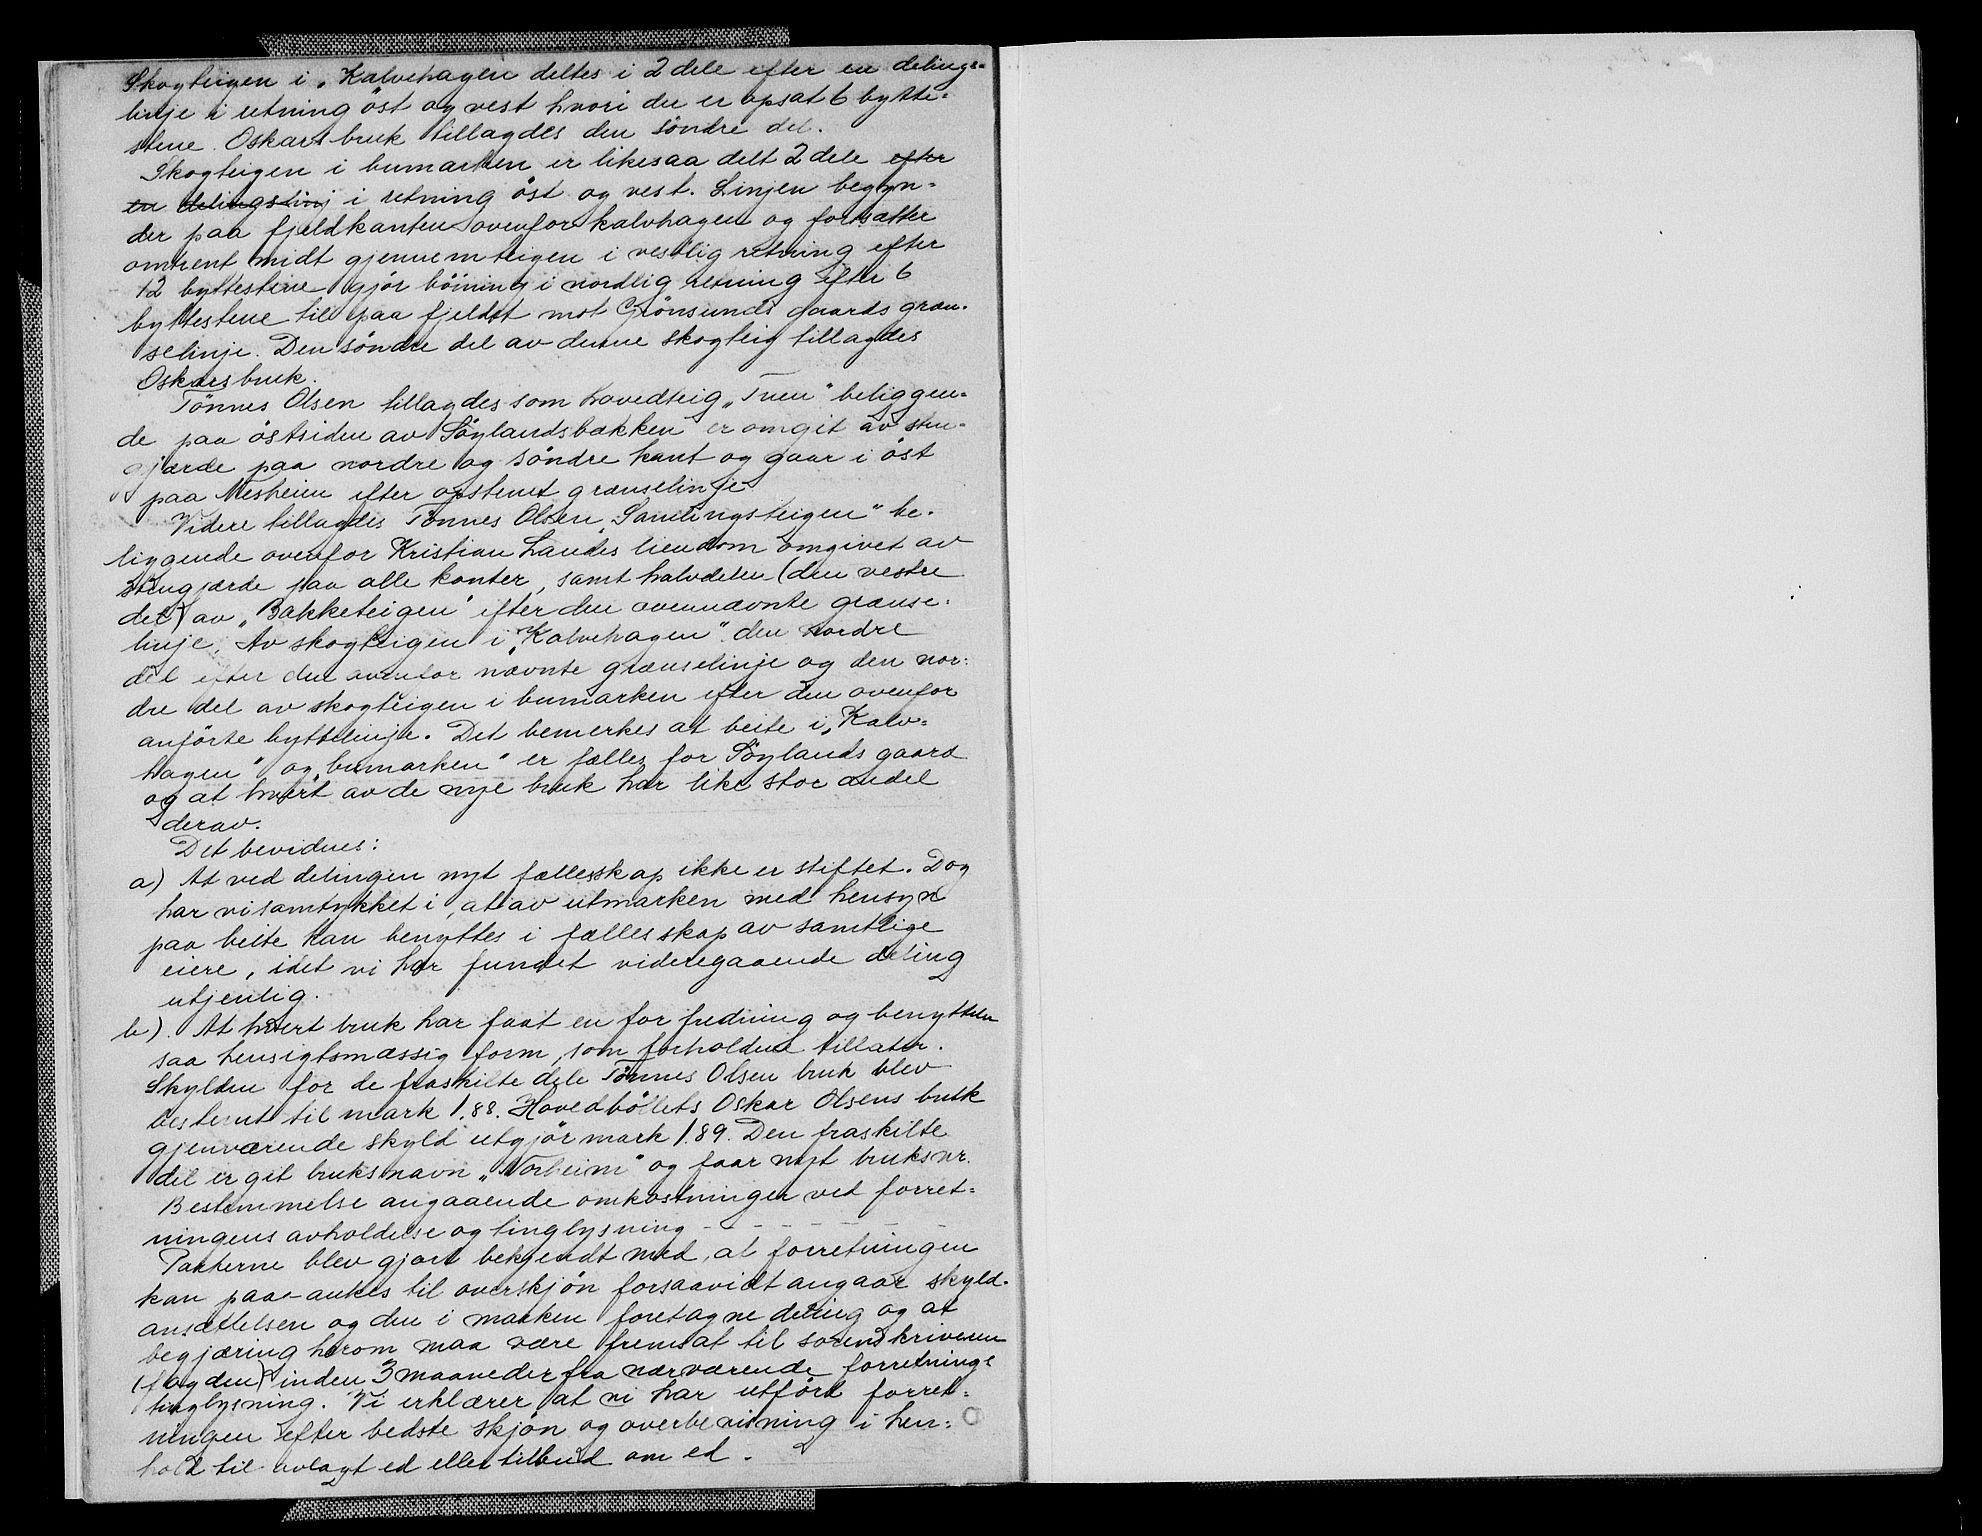 Skogteigen i „Kalvehagen deltes i 2 dele efter en delings-
linje i retning öst og vest hvori der er opsat 6 bytte-
stene. Oskars bruk tillagdes den söndre del.
Skogteigen i bumarken er likesaa delt 2 dele efter
en delingslinj i retning öst og vest. Linjen begyn-
der paa fjeldkanten ovenfor kalvhagen og fortsætter
omtrent midt gjennem teigen i vestlig retning efter
12 byttestene gjör böining i nordlig retning efter 6
byttestene til paa fjeldet mot Grönsunds gaards græn-
selinje. Den söndre del av denne skogteig tillagdes
Oskars bruk.
Tönnes Olsen tillagdes som hovedteig „Tuen" beliggen-
de paa östsiden av Söylandsbækken er omgit av sten-
gjærde paa nordre og söndre kant og gaar i öst
paa Nesheien efter opstenet grænselinje
Videre tillagdes Tönnes Olsen „Samlingsteigen" be-
liggende ovenfor Kristian Landes eiendom omgivet av
stengjærde paa alle kanter, samt halvdelen (den vestre
del) av „Bakketeigen" efter den ovennævnte grænse-
linje. Av skogteigen i „Kalvehagen" den nordre
del efter den ovenfor nævnte grænselinje og den nor-
dre del av skogteigen i bumarken efter den ovenfor
anförte byttelinje. Det bemerkes at beite i „Kalv-
hagen" og „bumarken" er fælles for Söylands gaard
og at hvert av de nye bruk har like stor andel
derav.
Det bevidnes:
a) At ved delingen nyt fællesskap ikke er stiftet. Dog
har vi samtykket i, at av utmarken med hensyn
paa beite kan benyttes i fællesskap av samtlige
eiere, idet vi har fundet videregaaende deling
utjenlig.
b). At hvert bruk har faat en for fredning og benyttelse
saa hensigtsmæssig form, som forholdene tillater.
Skylden for de fraskilte dele Tönnes Olsen bruk blev
bestemt til mark 1.88. Hovedbölets Oskar Olsens bruk
gjenværende skyld utgjör mark 1.89. Den fraskilte
del er git bruksnavn „Norheim" og faar nyt bruksnr.
Bestemmelse angaaende omkostninger ved forret-
ningens avholdelse og tinglysning - - - - - - - -
Parterne blev gjort bekjendt med, at forretningen
kan paa-ankes til overskjön forsaavidt angaar skyld-
ansættelsen og den i marken foretagne deling og at
begjæring herom maa være fremsat til sorenskriveren
(fogden) inden 3 maaneder fra nærværende forretnings
tinglysning. Vi erklærer at vi har utfört forret-
ningen efter bedste skjön og overbevisning i hen-
hold til avlagt ed eller tilbud om ed.